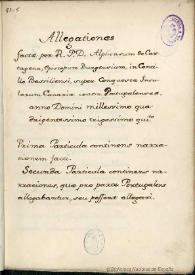 Allegationes
factæ per R. P. D. Alphonsum de Car-
tagena, Episcopum Burgensem, in Conci-
lio Bassiliensi, super Conquesta Insu-
larum Canariæ contra Portugalenses,
anno Domini millessimo qua-
dringentessimo trigessimo qui.to
Prima Particula continens narra-
tionem facti.
Secunda Particula continens na-
rraciones, quæ pro parte Portugalens
allegabantur, seu possent allegari.